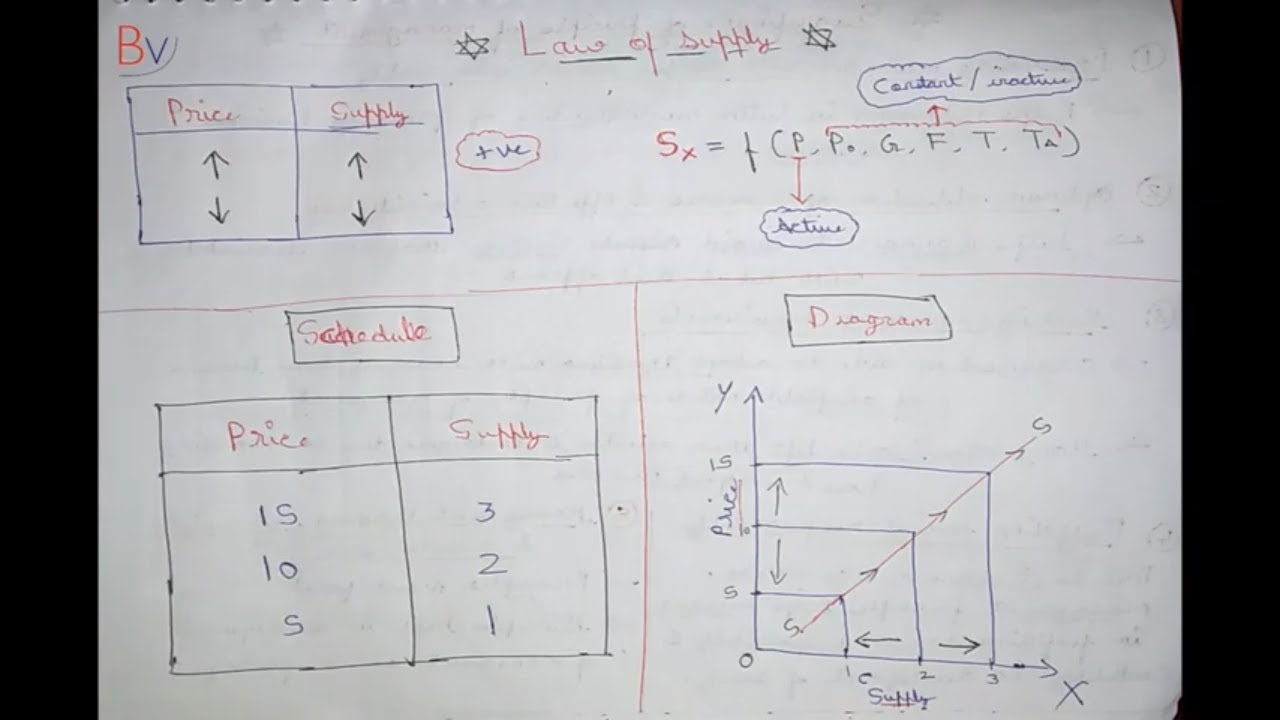 BV
☆ Law of supply ☆
Price Supply
↑ ↑
↓ ↓
+ve
Constant / inactive
Sx = f (P, Po, G, F, T, TA)
Active
Schedule
Price Supply
15 3
10 2
5 1
Diagram
Y
S
15
Price
10
5
S
O
1 2 3
Supply
X